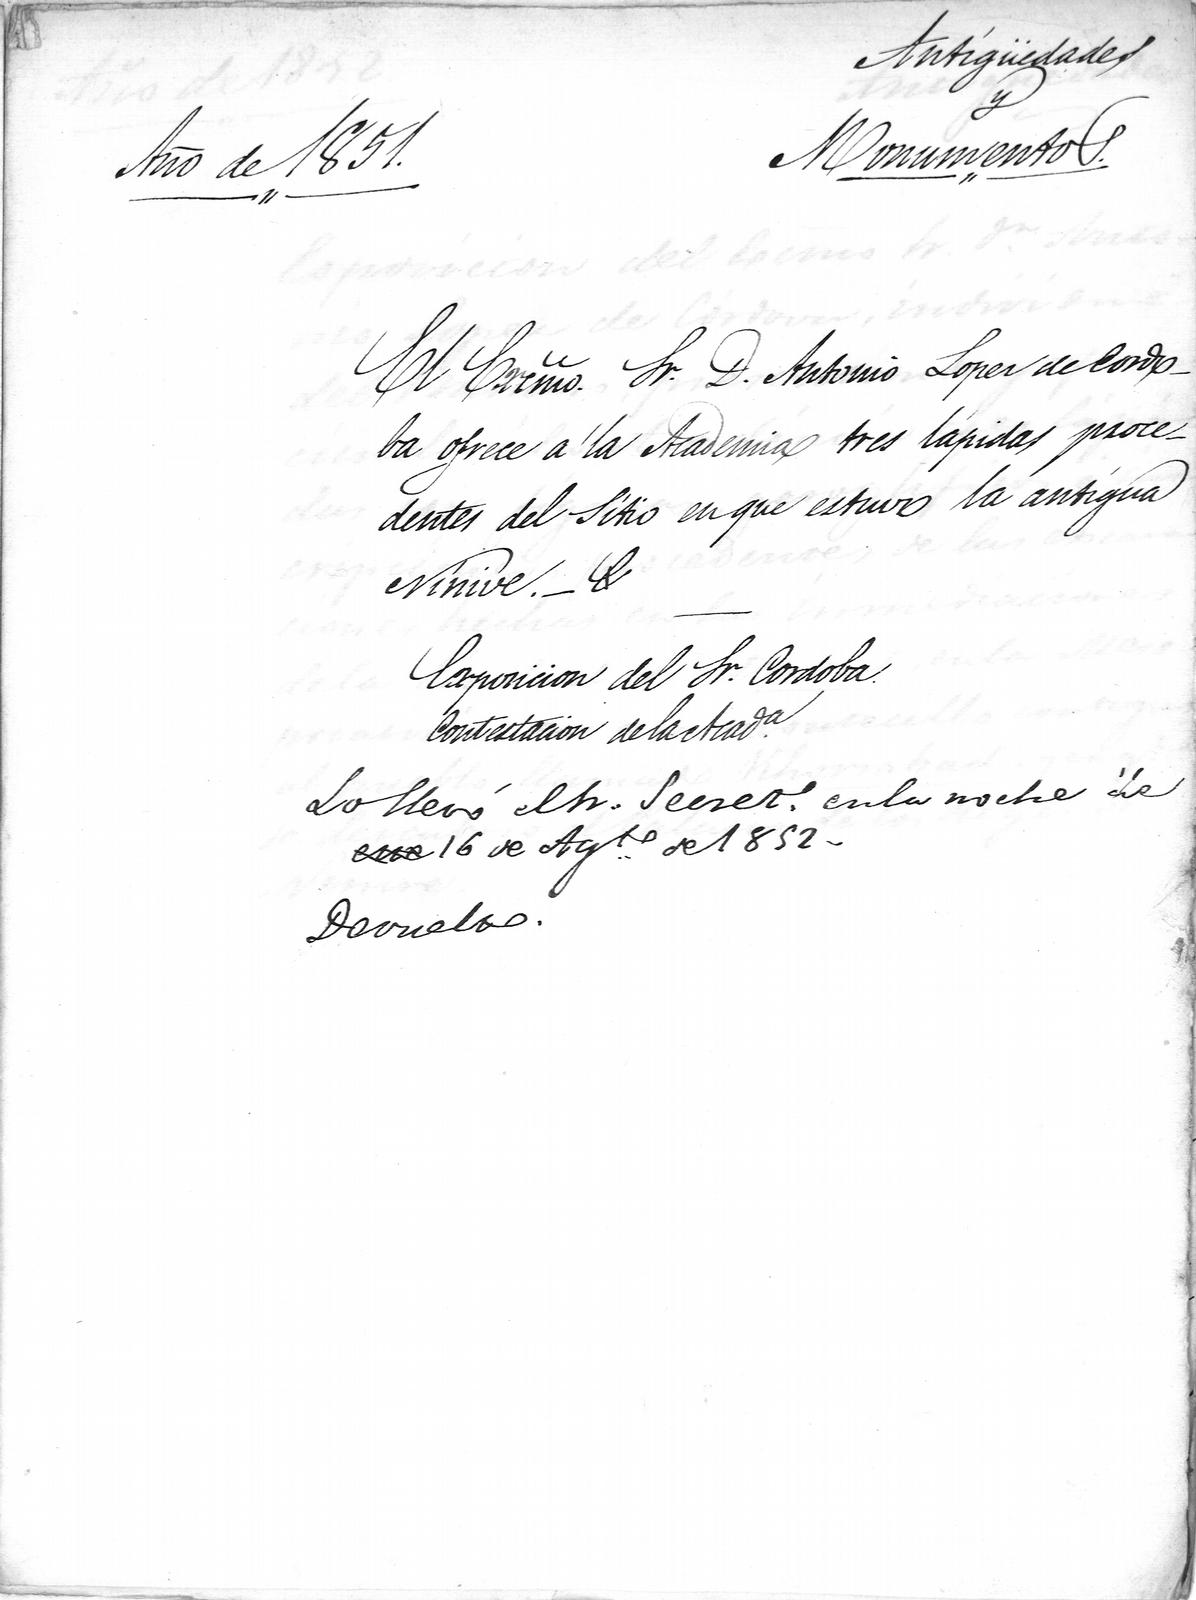 Antigüedades
y
Monumentos.
Año de 1851.
El Excmo. Sr. D. Antonio Lopez de Cordo-
ba ofrece á la Academia tres lápidas proce-
dentes del Sitio en que estuvo la antigua
Ninive. _ &
Exposicion del Sr. Cordoba.
Contestacion de la Acad.a
Lo llevó el Sr. Secret.o en la noche de
16 de Agto de 1852 -
Devuelto.